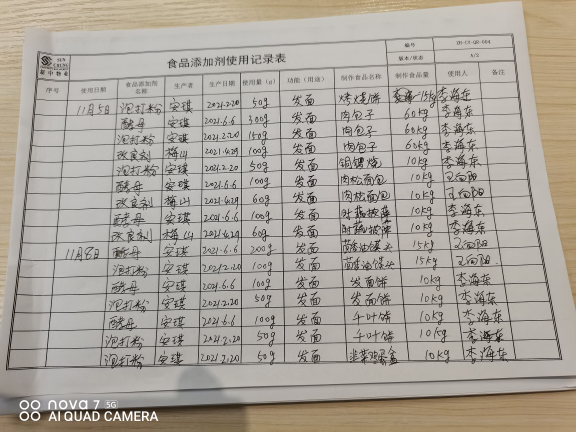 SUN CHUNG
新中物业
食品添加剂使用记录表
编号 ZH-CY-QR-084
版本/状态 A/2
序号 使用日期 食品添加剂名称 生产者 生产日期 使用量(g) 功能(用途) 制作食品名称 制作食品量 使用人 备注
11月5日 泡打粉 安琪 2021.2.20 50g 发面 烤烧饼 15kg 李海东
酵母 安琪 2021.6.6 300g 发面 肉包子 60kg 李海东
泡打粉 安琪 2021.2.20 150g 发面 肉包子 60kg 李海东
改良剂 梅山 2021.4.29 100g 发面 肉包子 60kg 李海东
泡打粉 安琪 2021.2.20 50g 发面 铜锣烧 10kg 李海东
酵母 安琪 2021.6.6 100g 发面 肉松面包 10kg 王向阳
改良剂 梅山 2021.4.29 60g 发面 肉松面包 10kg 王向阳
酵母 安琪 2021.6.6 100g 发面 时蔬披萨 10kg 李海东
改良剂 梅山 2021.4.29 60g 发面 时蔬披萨 10kg 李海东
11月8日 酵母 安琪 2021.6.6 200g 发面 15kg 王向阳
泡打粉 安琪 2021.2.20 100g 发面 15kg 王向阳
酵母 安琪 2021.6.6 100g 发面 发面饼 10kg 李海东
泡打粉 安琪 2021.2.20 50g 发面 发面饼 10kg 李海东
酵母 安琪 2021.6.6 100g 发面 千叶饼 10kg 李海东
泡打粉 安琪 2021.2.20 50g 发面 千叶饼 10kg 李海东
泡打粉 安琪 2021.2.20 50g 发面 韭菜鸡蛋盒 10kg 李海东
nova 7 5G
AI QUAD CAMERA